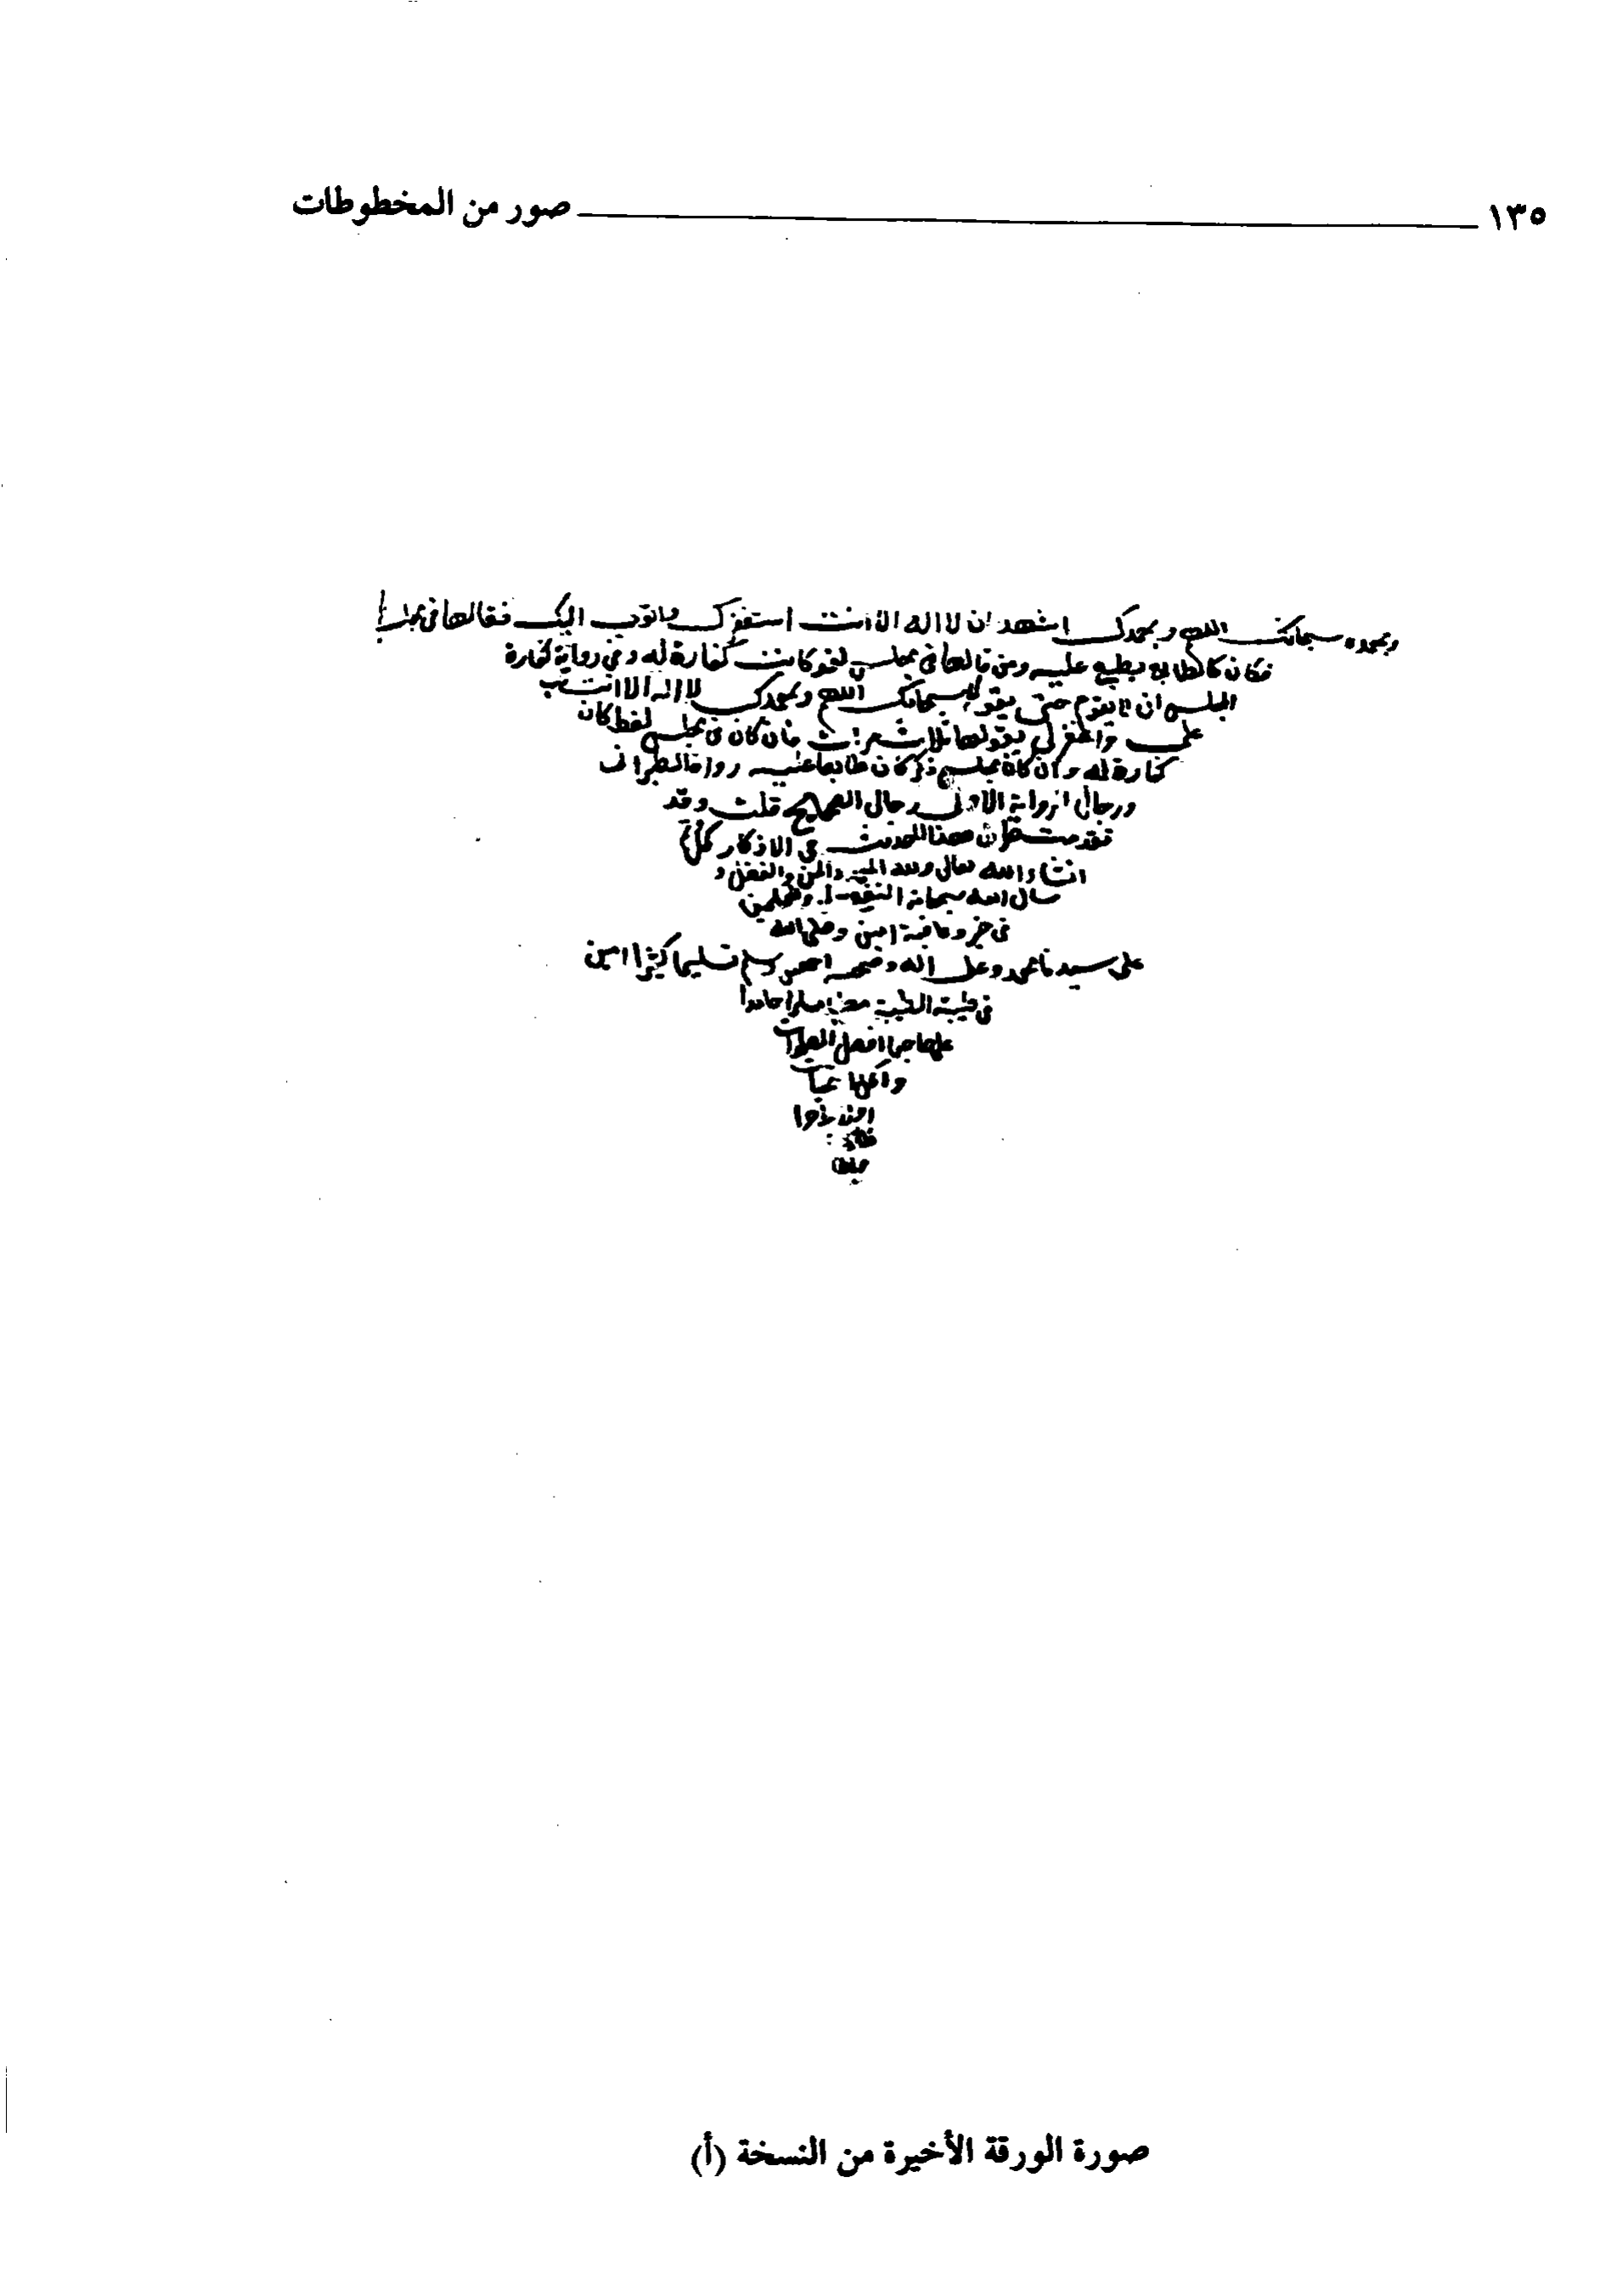 ١٣٥ صور من المخطوطات
وبحمده سبحانك اللهم وبحمدك اشهد ان لا اله الا انت استغفرك واتوب اليك فقالها فى مجلس
فكان كالطابع يطبع عليه ومن قالها فى مجلس لغو كانت كفارة له وفي رواية كفارة
المجلس ان لا يقوم حتى يقول سبحانك اللهم وبحمدك لا اله الا انت تب
على واغفر لى يقولها ثلاث مرات فان كان فى مجلس لغط كان
كفارة له وان كان مجلس ذكر كان طابعا عليه رواه الطبرانى
ورجال الرواية الاولى رجال الصحيح قلت وقد
تقدمت هذا الحديث فى الاذكار
ان شاء الله تعالى ولله الحمد والمن والفضل و
سال الله سبحانه
فى خير وعافية امين وصلى الله
على سيدنا محمد وعلى اله وصحبه اجمعين وسلم تسليما كثيرا امين
فى طيبة الطيبة مصليا مسلما حامدا
على افضل الصلوات
واكمل
صورة الورقة الأخيرة من النسخة (أ)